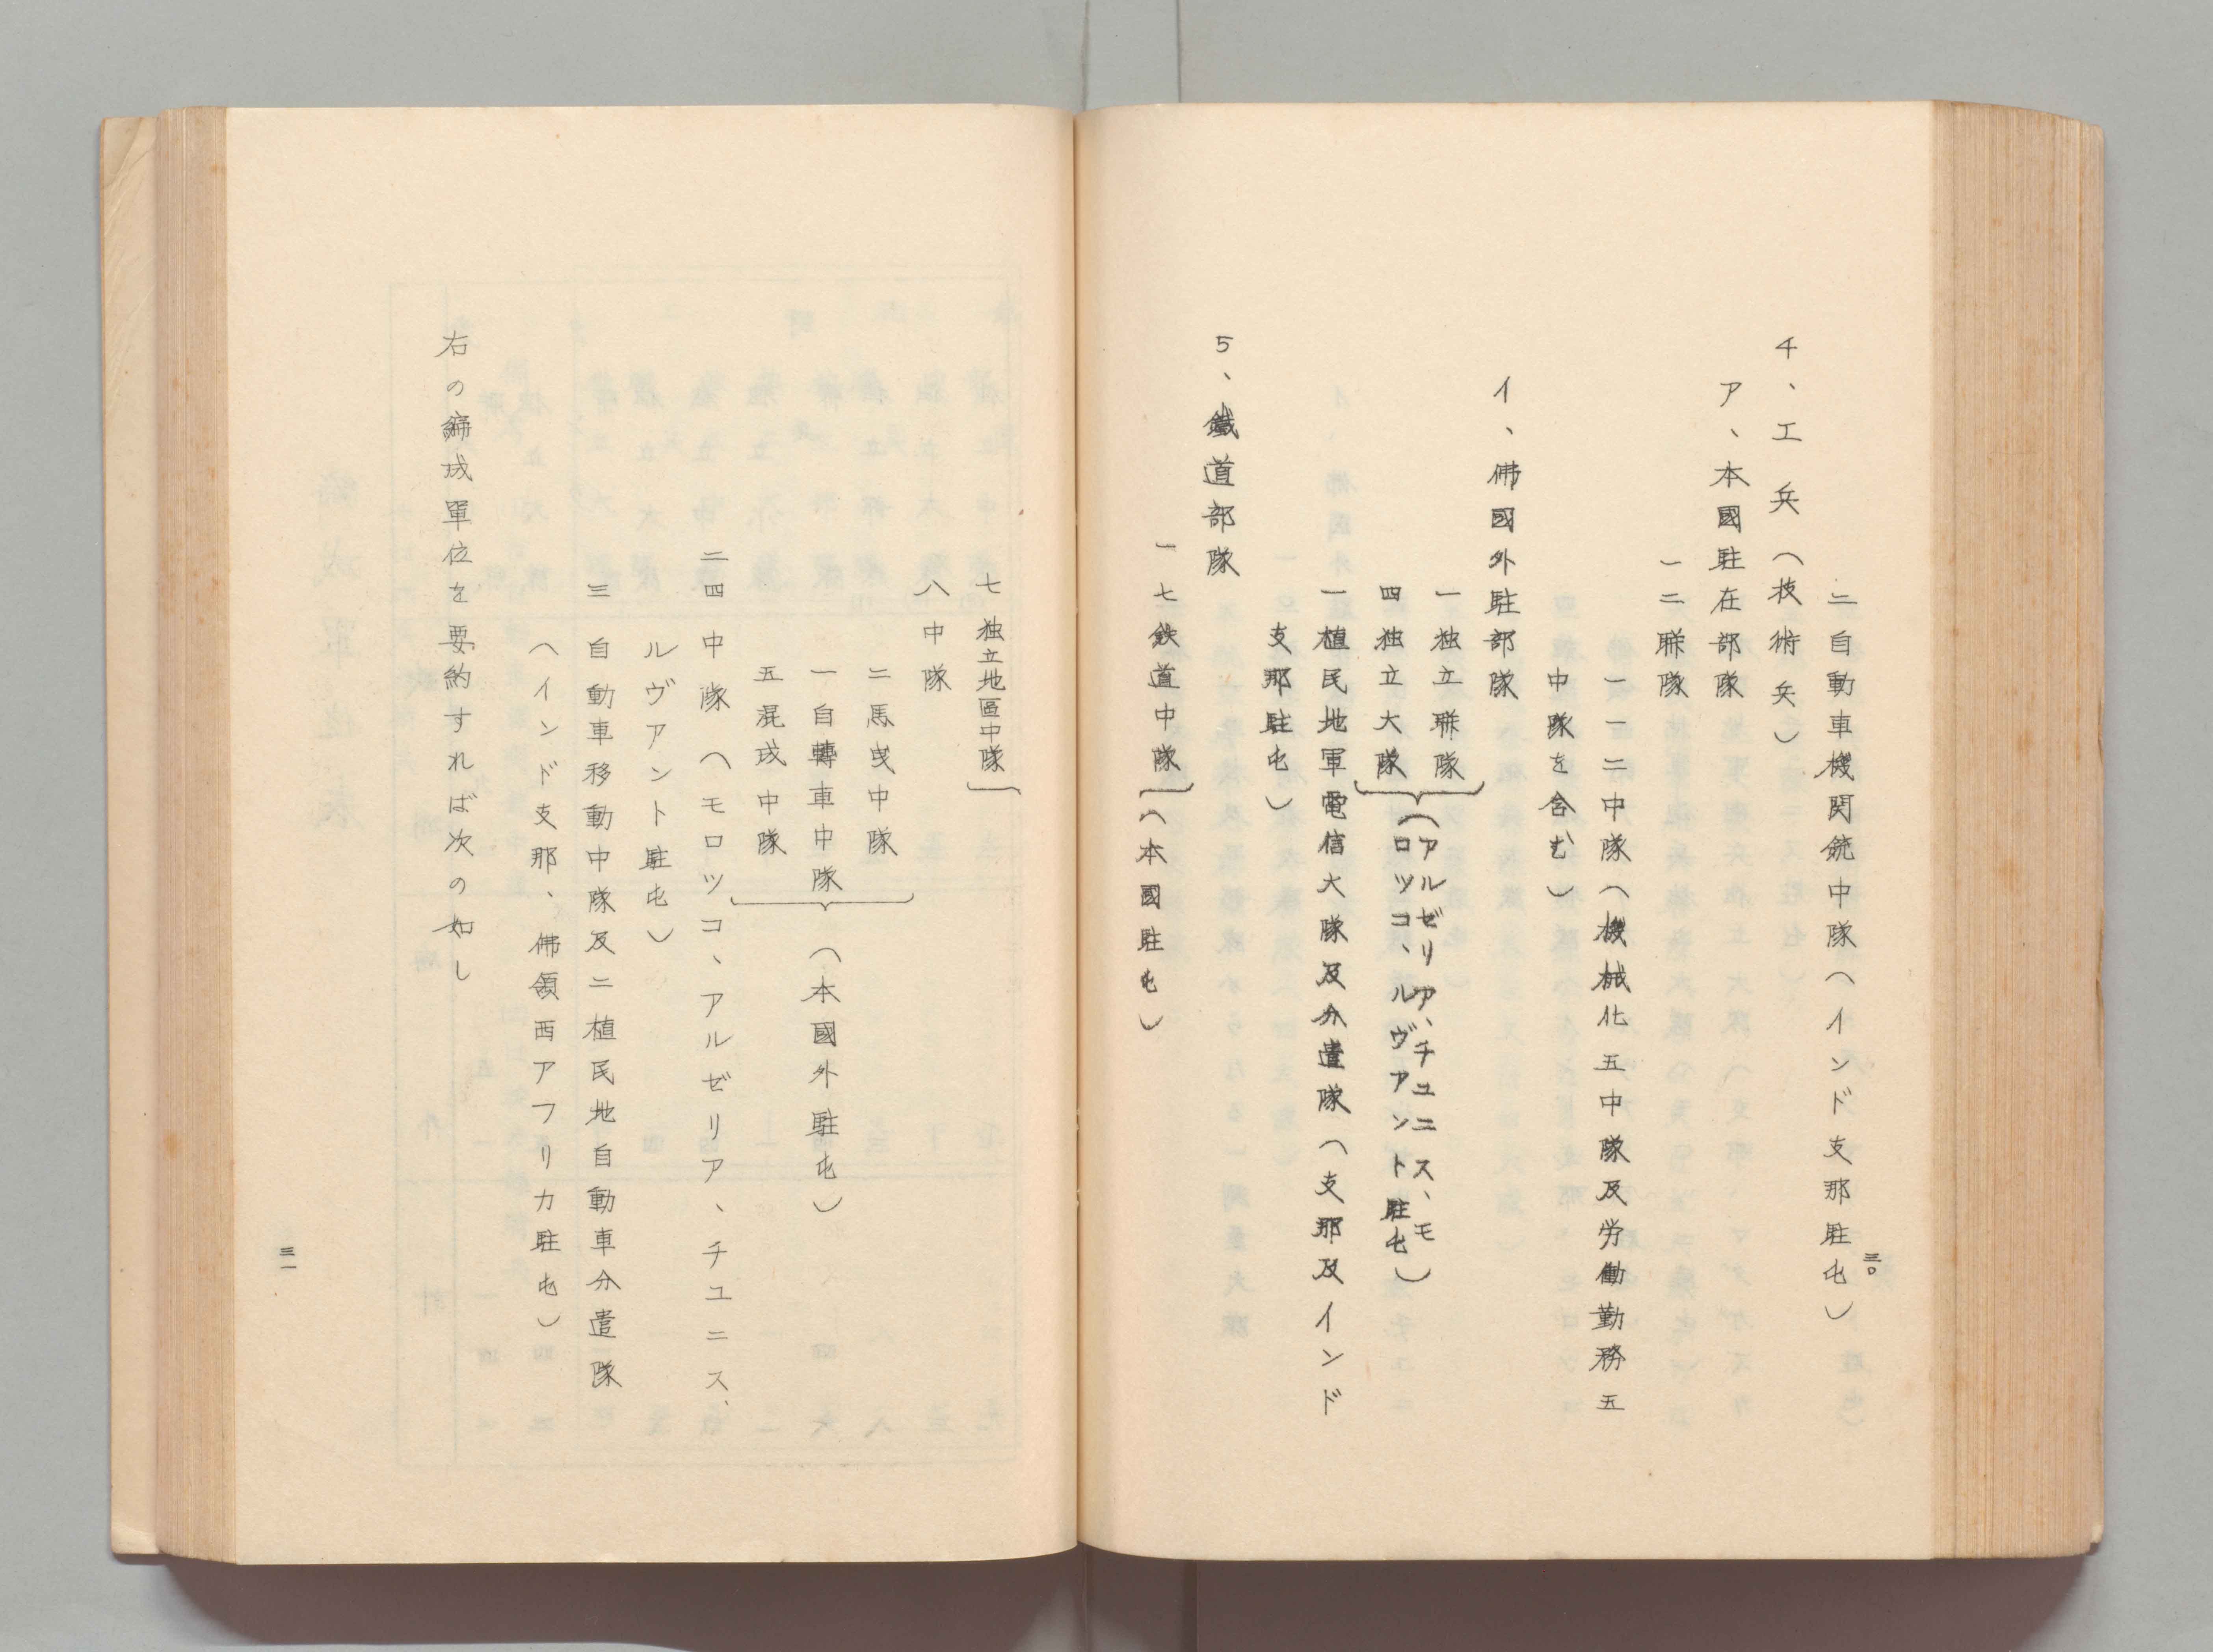 二自動車機関銃中隊（インド支那駐屯）
4、工兵（技術兵）
ア、本國駐在部隊
一二聯隊
一一二中隊（機械化五中隊及労働勤務五
中隊を含む）
イ、佛國外駐部隊
一独立聯隊
四独立大隊
（アルゼリア、チユニス、モ
ロツコ、ルヴアント駐屯）
一植民地軍電信大隊及分遣隊（支那及インド
支那駐屯）
5、鐵道部隊
一七鉄道中隊（本國駐屯）
三〇
七独立地區中隊
八中隊
二馬曳中隊
一自轉車中隊
五混成中隊
（本國外駐屯）
二四中隊（モロツコ、アルゼリア、チユニス、
ルヴアント駐屯）
三自動車移動中隊及二植民地自動車分遣隊
（インド支那、佛領西アフリカ駐屯）
右の編成單位を要約すれば次の如し
三一